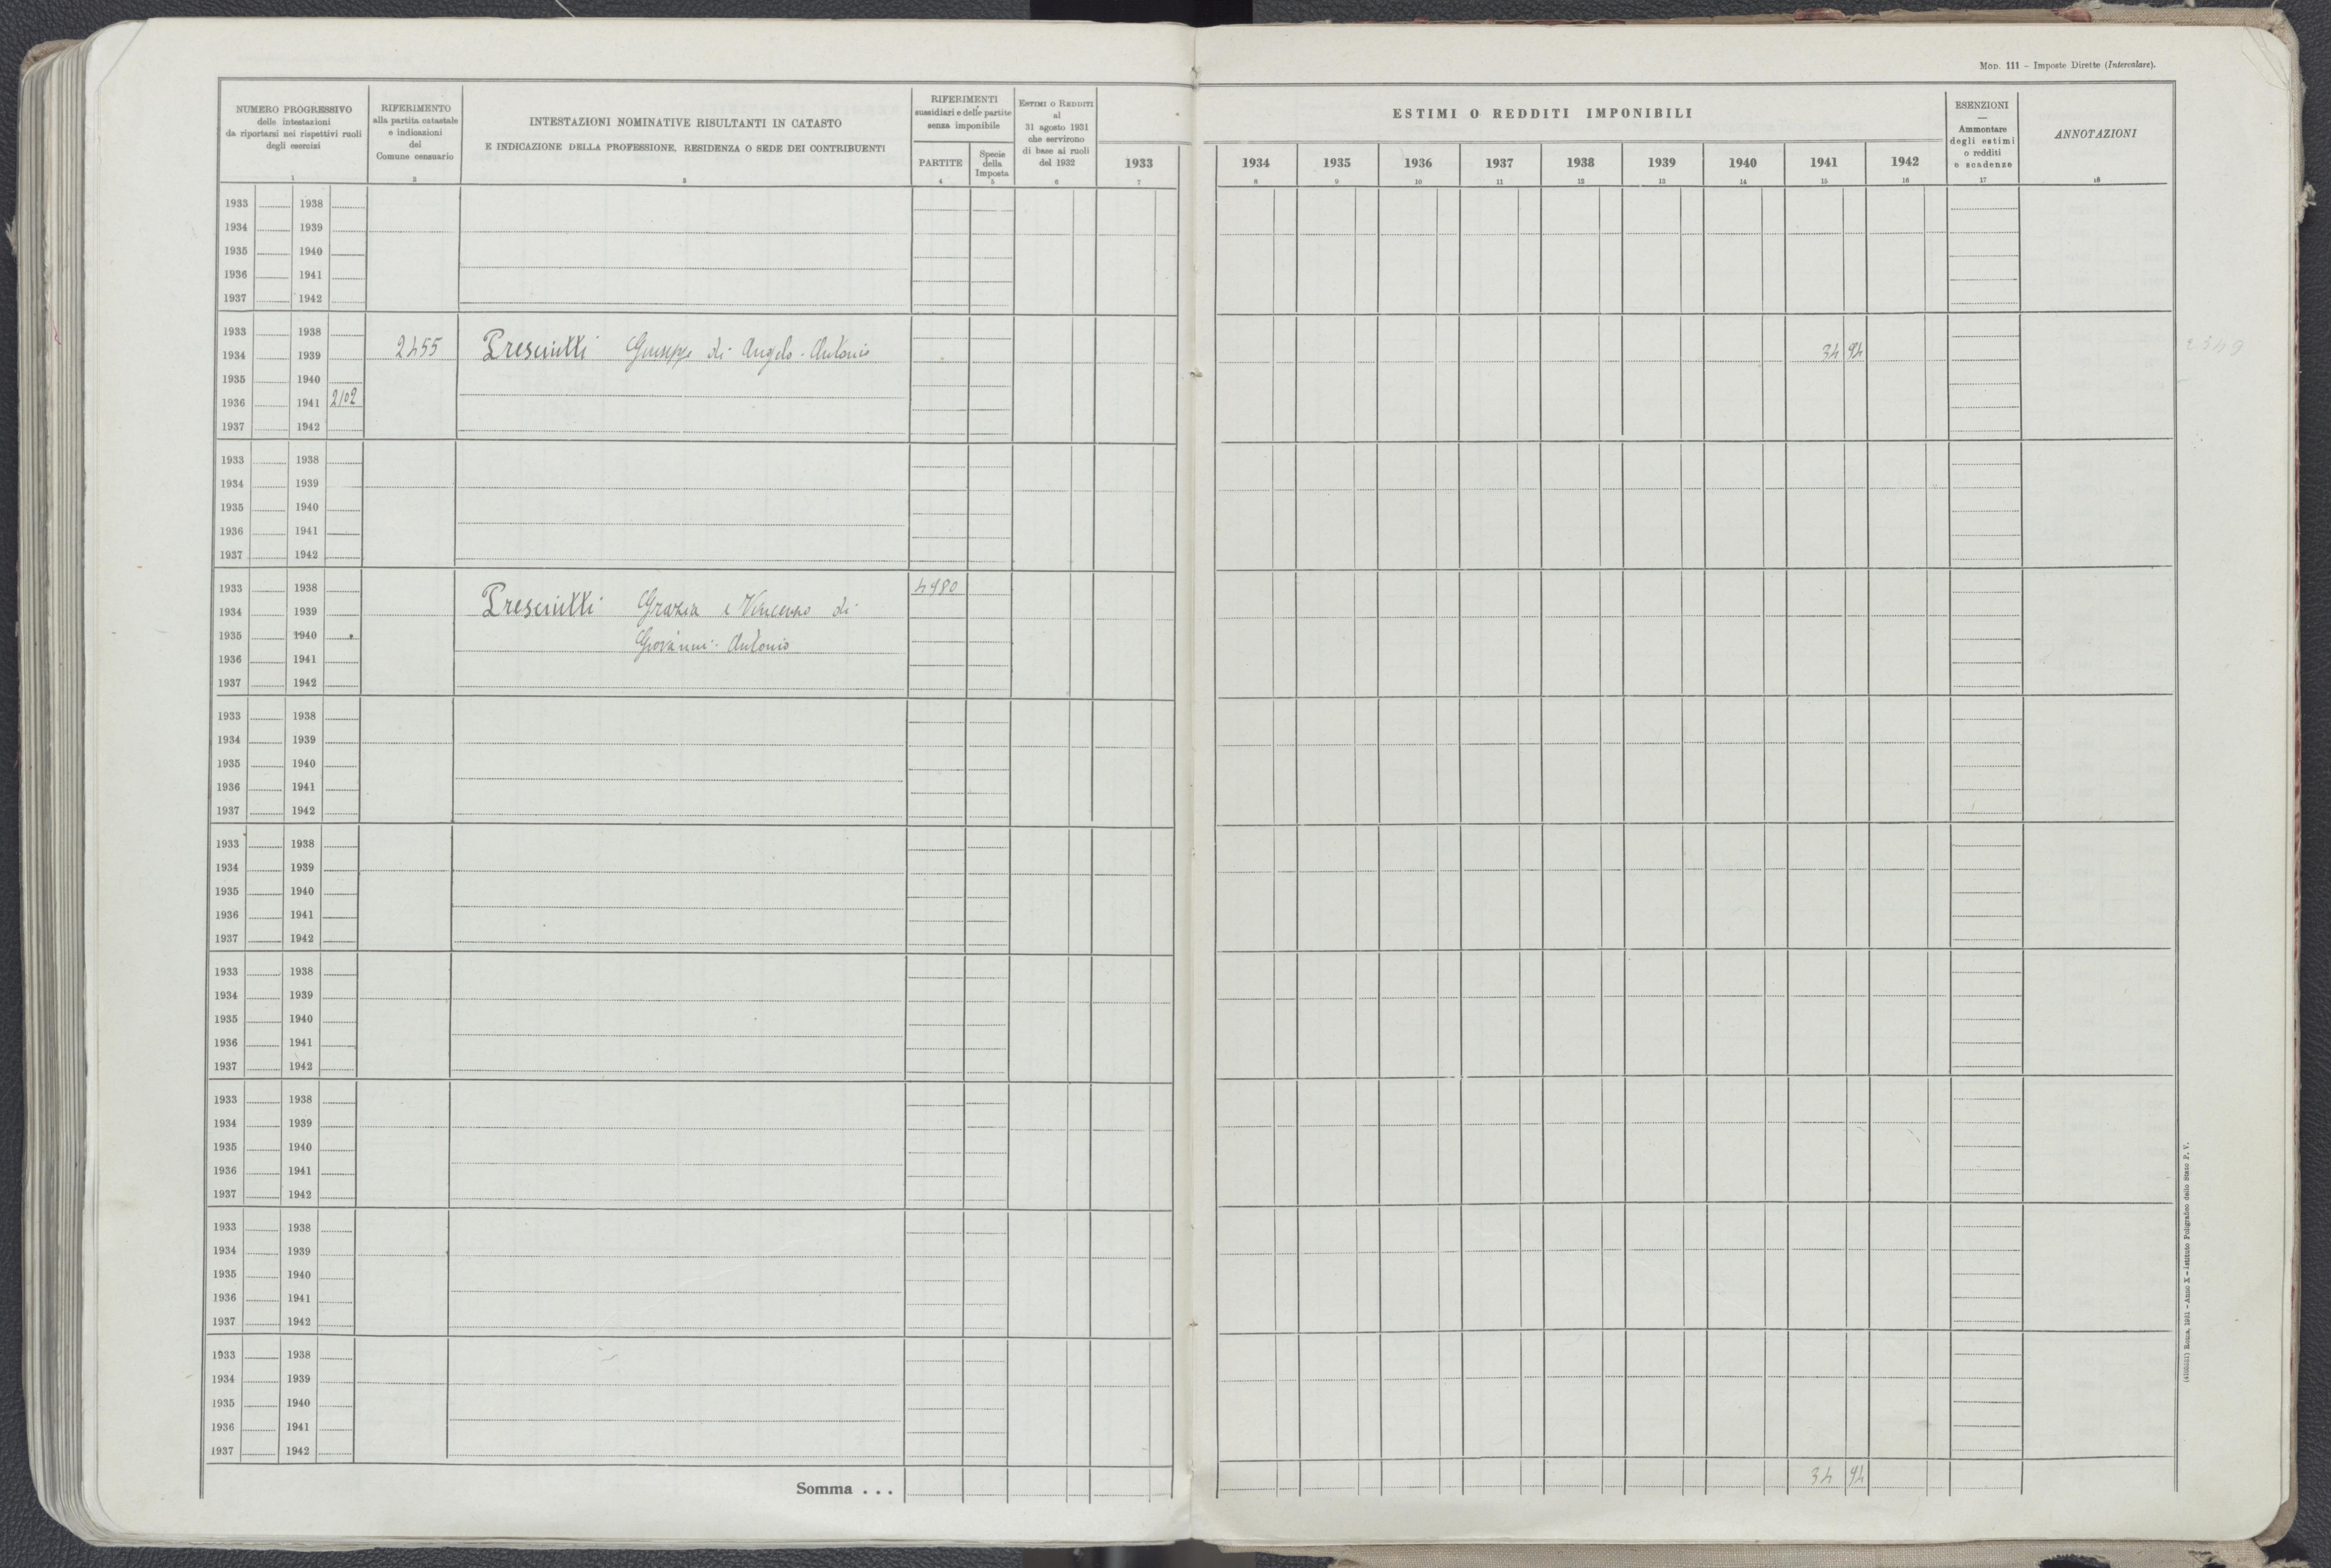 Mod. 111 – Imposte Dirette (Intercalare).
NUMERO PROGRESSIVO
delle intestazioni
da riportarsi nei rispettivi ruoli
degli esercizi
1
RIFERIMENTO
alla partita catastale
e indicazioni
del
Comune censuario
2
INTESTAZIONI NOMINATIVE RISULTANTI IN CATASTO
E INDICAZIONE DELLA PROFESSIONE, RESIDENZA O SEDE DEI CONTRIBUENTI
3
RIFERIMENTI
sussidiari e delle partite
senza imponibile
PARTITE
4
Specie
della
Imposta
5
Estimi o Redditi
al
31 agosto 1931
che servirono
di base ai ruoli
del 1932
6
1933
7
ESTIMI O REDDITI IMPONIBILI
1934 1935 1936 1937 1938 1939 1940 1941 1942
8 9 10 11 12 13 14 15 16
ESENZIONI
—
Ammontare
degli estimi
o redditi
e scadenze
17
ANNOTAZIONI
18
1933 1938
1934 1939
1935 1940
1936 1941
1937 1942
1933 1938
1934 1939 2455 Presciutti Giuseppe di Angelo-Antonio 34 94 2349
1935 1940
1936 1941 2102
1937 1942
1933 1938
1934 1939
1935 1940
1936 1941
1937 1942
1933 1938 4980
1934 1939 Presciutti Grazia e Vincenzo di
1935 1940 Giovanni-Antonio
1936 1941
1937 1942
1933 1938
1934 1939
1935 1940
1936 1941
1937 1942
1933 1938
1934 1939
1935 1940
1936 1941
1937 1942
1933 1938
1934 1939
1935 1940
1936 1941
1937 1942
1933 1938
1934 1939
1935 1940
1936 1941
1937 1942
1933 1938
1934 1939
1935 1940
1936 1941
1937 1942
1933 1938
1934 1939
1935 1940
1936 1941
1937 1942
Somma . . . 34 94
Roma, 1931 – Anno X – Istituto Poligrafico dello Stato P. V.